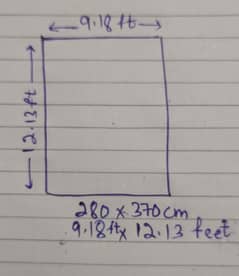 9.18 ft
12.13 ft
280 x 370 cm
9.18 ft x 12.13 feet